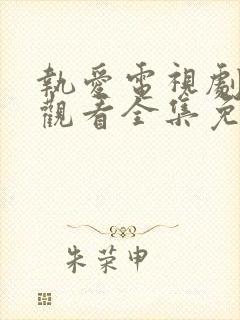 執愛電視劇
觀看全集免
朱荣申